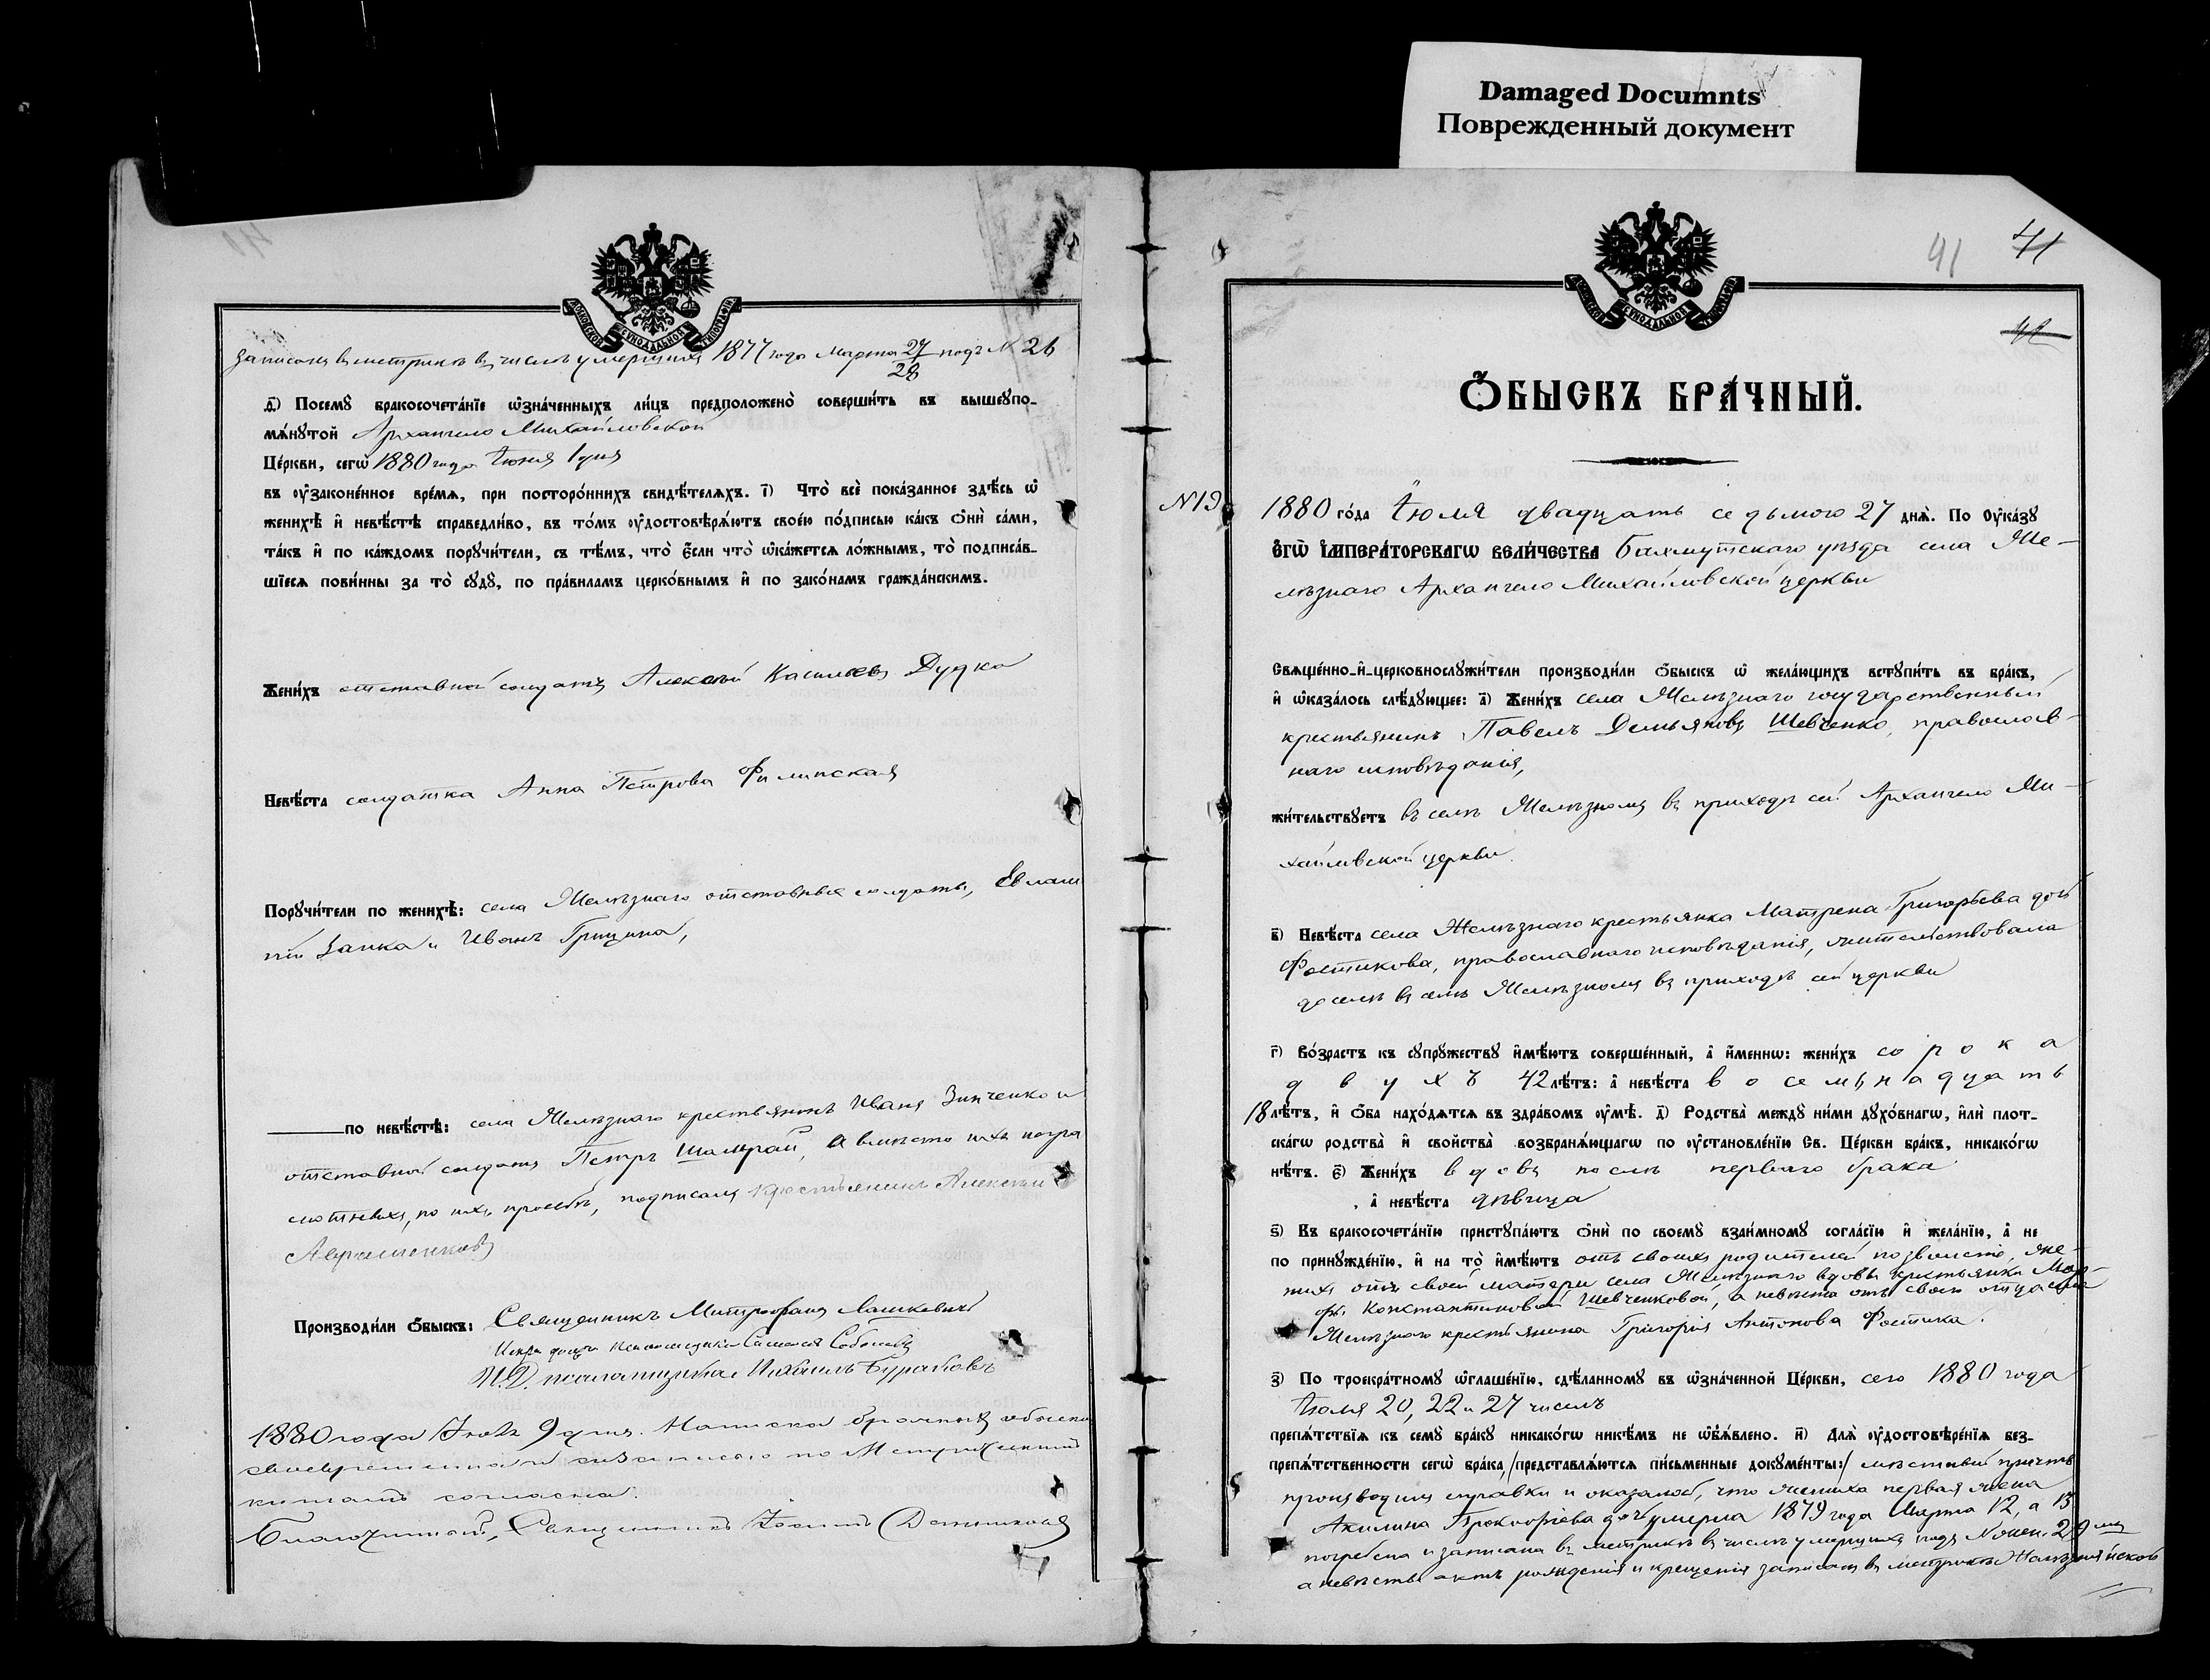 Damaged Documnts
Поврежденный документ
записанъ въ метрикѣ въ числѣ умершихъ 1877 года Марта 27/28 подъ № 26
д҃) Посемꙋ бракосочета́нїе ѡ҆зна́ченныхъ ли́цъ предположено̀ соверши́ть въ вышеꙋпо-
мѧ́нꙋтой Архангело Михайловской
Це́ркви, сегѡ̀ 1880 года Іюня 1 дня
въ ᲂу҆законе́нное вре́мѧ, при посторо́ннихъ свидѣ́телѧхъ. і҃) Что̀ всѐ пока́занное здѣ́сь ѡ҆
женихѣ̀ и҆ невѣ́стѣ справедли́во, въ то́мъ ᲂу҆достовѣрѧ́ютъ свое́ю по́дписью ка́къ ѻ҆нѝ са́ми,
та́къ и҆ по ка́ждомъ порꙋчи́тели, съ тѣ́мъ, что̀ є҆́сли что̀ ѡ҆ка́жетсѧ ло́жнымъ, то̀ подписа́в-
шїесѧ пови́нны за то̀ сꙋдꙋ̀, по пра́виламъ церко́внымъ и҆ по зако́намъ гражда́нскимъ.
Жени́хъ отставной солдатъ Алексѣй Васильевъ Дудка
Невѣ́ста солдатка Анна Петрова Филинская
Порꙋчи́тели по женихѣ̀: села Желѣзнаго отставные солдаты, Евлам
пій Заика и Иванъ Грицина,
по невѣ́стѣ: села Желѣзнаго крестьянинъ Иванъ Зинченко и
отставной солдатъ Петръ Шамрай, а вмѣсто ихъ негра
мотныхъ, по ихъ просьбѣ, подписалъ крестьянинъ Алексѣй
Авраменковъ
Производи́ли ѻ҆́быскъ: Священникъ Митрофанъ Лашкевичъ
псаломщика
И.Д. псаломщика Михаилъ Бураковъ
1880 года Іюля 9 дня. Записка брачныхъ обыско
своевременна и согласно по Метрическимъ
книгамъ согласна.
Благочинный, Священникъ Іосифъ
41
41
ѺБЫСКЪ БРА́ЧНЫЙ.
№ 19
1880 го́да Іюля двадцать седьмого 27 днѧ̀. По ᲂу҆ка́зꙋ
Є҆гѡ̀ І҆мпера́торскагѡ Вели́чества Бахмутскаго уѣзда села Же-
лѣзнаго Архангело Михайловской церкви
Свѧще́нно-и҆-церковнослꙋжи́тели производи́ли ѻ҆́быскъ ѡ҆ жела́ющихъ встꙋпи́ть въ бра́къ,
и҆ ѡ҆каза́лось слѣ́дꙋющее: а҃) Жени́хъ села Желѣзнаго государственный
крестьянинъ Павелъ Демьяновъ Шевченко, православ-
наго исповѣданія,
жи́тельствꙋетъ въ селѣ Желѣзномъ въ приходѣ сей Архангело Ми-
хайловской церкви.
в҃) Невѣ́ста села Желѣзнаго крестьянка Матрена Григорьева дочь
Фостикова, православнаго исповѣданія, жительствовала
доселѣ въ селѣ Желѣзномъ въ приходѣ сей церкви
г҃) Во́зрастъ къ сꙋпрꙋ́жествꙋ и҆мѣ́ютъ соверше́нный, а҆ и҆́меннѡ: жени́хъ сорока
двухъ 42 лѣ́тъ: а҆ невѣ́ста восемьнадцать
18 лѣ́тъ, и҆ ѻ҆́ба нахо́дѧтсѧ въ здра́вомъ ᲂу҆мѣ̀. д҃) Родства̀ междꙋ̀ ни́ми дꙋхо́внагѡ, и҆лѝ плот-
ска́гѡ родства̀ и҆ свойства̀ возбранѧ́ющагѡ по ᲂу҆становле́нїю Св. Це́ркви бра́къ, никако́гѡ
нѣ́тъ. є҃) Жени́хъ вдовъ послѣ перваго брака
, а҆ невѣ́ста дѣвица
ѕ҃) Въ бракосочета́нїю пристꙋпа́ютъ ѻ҆нѝ по своемꙋ̀ взаи́мномꙋ согла́сїю и҆ жела́нїю, а҆ не
по принꙋжде́нїю, и҆ на то̀ и҆мѣ́ютъ отъ своихъ родителей позволеніе, же-
нихъ отъ своей матери села Желѣзнаго вдовы крестьянки Мар-
фы Константиновой Шевченковой, а невѣста отъ своего отца села
Желѣзнаго крестьянина Григорія Антонова Фостика.
з҃) По троекра́тномꙋ ѡ҆глаше́нїю, сдѣ́ланномꙋ въ ѡ҆зна́ченной Це́ркви, сего 1880 года
Іюля 20, 22 и 27 числъ
препѧ́тствїѧ къ семꙋ̀ бра́кꙋ никако́гѡ никѣ́мъ не ѡ҆б̾ѧ́влено. и҃) Длѧ̀ ᲂу҆достовѣре́нїѧ без-
препѧ́тственности сегѡ̀ бра́ка, /представлѧ́ютсѧ пи́сьменные докꙋме́нты:/ мѣстный причтъ
производилъ справки и оказалось, что жениха первая жена
Акилина Прокофіева дочь умерла 1879 года Марта 12, а 13
погребена и записана въ метрикѣ въ числѣ умершихъ подъ № жен. 20мъ
а невѣсты актъ рожденія и крещенія записанъ въ метрикѣ